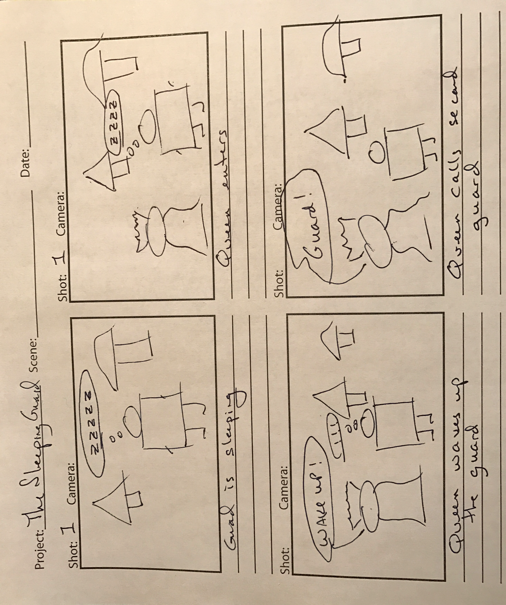 Project: The Sleeping Guard Scene: Date:
Shot: 1 Camera:
zzzzz
Guad is sleeping
Shot: 1 Camera:
zzzz
Queen enters
Shot: Camera:
WAKE UP!
!!!
Queen wakes up
the guard
Shot: Camera:
Guard!
Queen calls second
guard